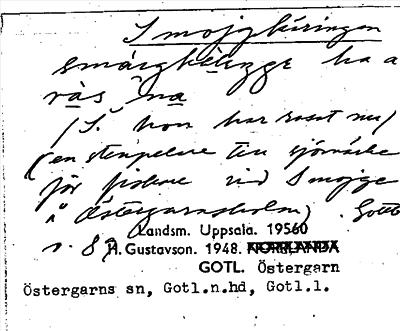 Smojgkäringen
smáigkélꞁŋge ha a
rås na
(S. hon har rasat ner)
(en stenpelare 
för fiskare vid Smojge
å Östergarnsholm) Gotl
s. 8
Landsm. Uppsala. 19560
H. Gustavson. 1948. NORRLANDA
GOTL. Östergarn
Östergarns sn, Gotl.n.hd, Gotl.l.